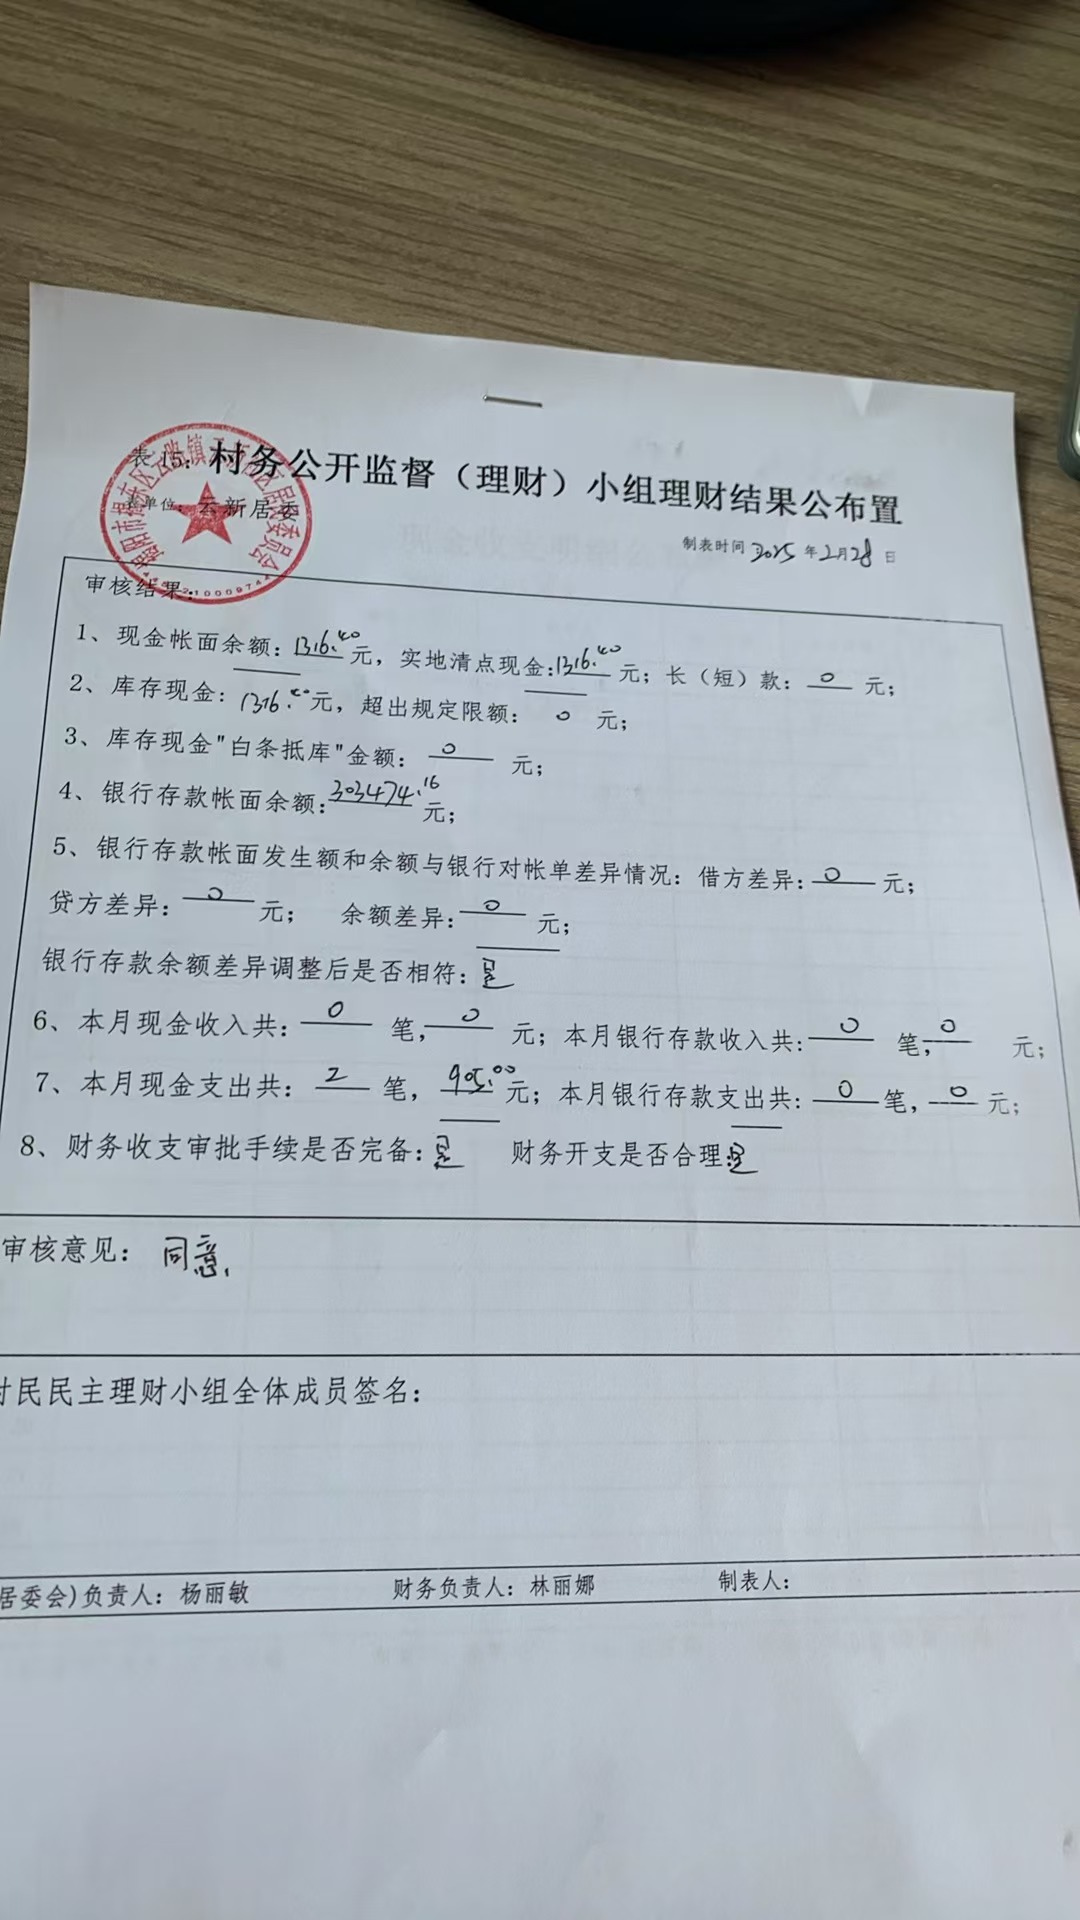 表15：村务公开监督（理财）小组理财结果公布置
单位：云新居委
制表时间 2025 年 2 月 28 日
审核结果：
1、现金帐面余额：1316.40元，实地清点现金:1316.40元；长（短）款：0元；
2、库存现金：1316.40元，超出规定限额：0元；
3、库存现金"白条抵库"金额：0元；
4、银行存款帐面余额:303474.16元；
5、银行存款帐面发生额和余额与银行对帐单差异情况：借方差异:0元；
贷方差异：0元； 余额差异:0元；
银行存款余额差异调整后是否相符：是
6、本月现金收入共：0笔，0元；本月银行存款收入共:0笔，0元；
7、本月现金支出共：2笔，905.00元；本月银行存款支出共:0笔，0元；
8、财务收支审批手续是否完备：是 财务开支是否合理:是
审核意见：同意.
村民民主理财小组全体成员签名：
居委会)负责人：杨丽敏 财务负责人：林丽娜 制表人：